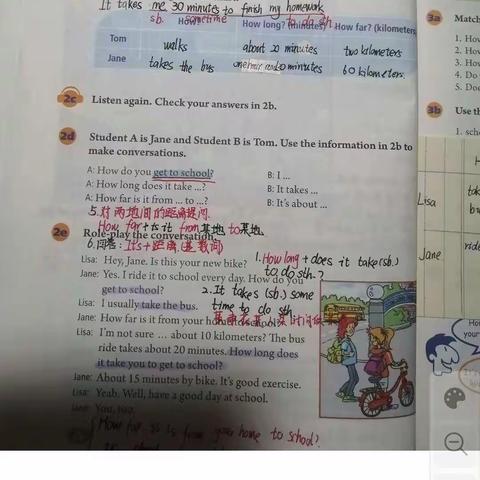 It takes me 30 minutes to finish my homework
sb. sometime to do sth
How? How long? (minutes) How far? (kilometers
Tom walks about 20 minutes two kilometers
Jane takes the bus minutes 60 kilometers
2c Listen again. Check your answers in 2b.
2d Student A is Jane and Student B is Tom. Use the information in 2b to
make conversations.
A: How do you get to school? B: I ...
A: How long does it take ...? B: It takes ...
A: How far is it from ... to ...? B: It's about ...
5.对两地间的距离提问.
How far + is it from某地 to某地.
2e Role-play the conversation.
6.回答: It's+距离
1.How long + does it take (sb.)
to do sth.?
Lisa: Hey, Jane. Is this your new bike?
Jane: Yes. I ride it to school every day. How do you
get to school?
2.It takes (sb.) some
time to do sth
Lisa: I usually take the bus.
Jane: How far is it from your home to school?
Lisa: I'm not sure ... about 10 kilometers? The bus
ride takes about 20 minutes. How long does
it take you to get to school?
Jane: About 15 minutes by bike. It's good exercise.
Lisa: Yeah. Well, have a good day at school.
Jane: You, too.
How far is from your home to school?
3a Match
1. How
2. How
3. How
4. Do
5. Doe
3b Use th
1. scho
H
Lisa tak
bu
Jane ride
Ho
your